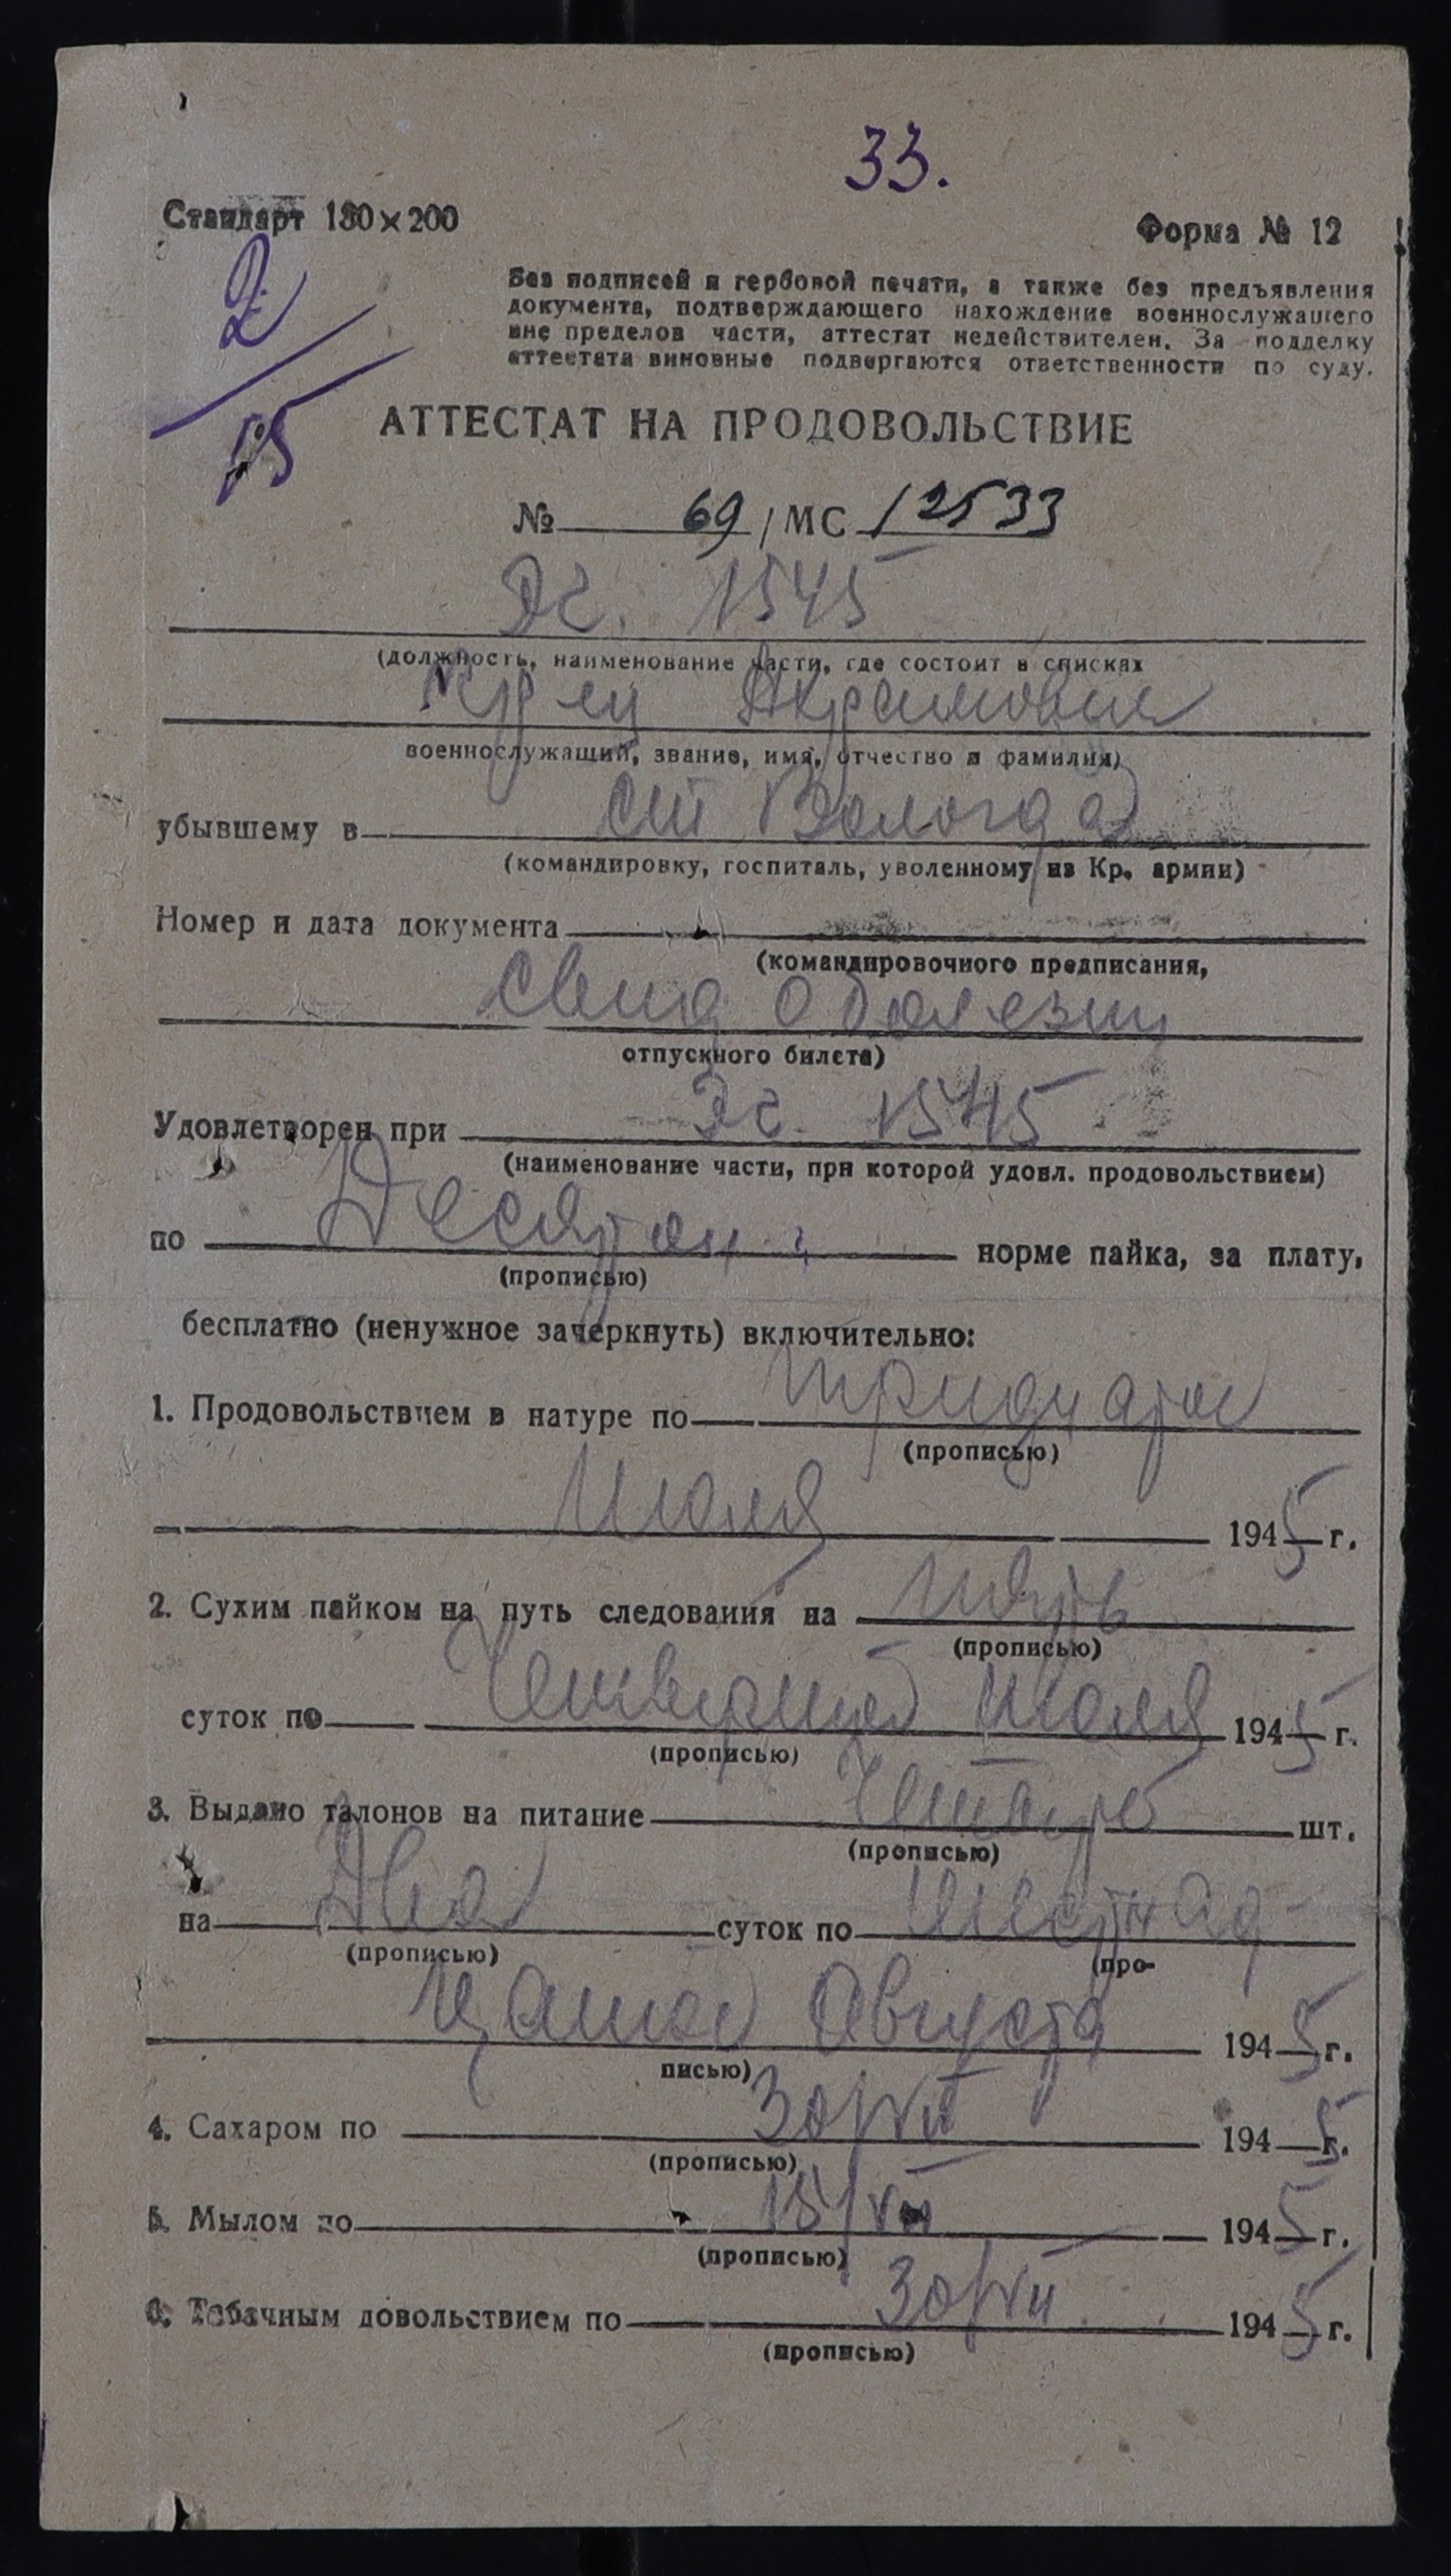 33.
Стандарт 130×200
Форма № 12
2/15
Без подписей и гербовой печати, а также без предъявления
документа, подтверждающего нахождение военнослужащего
вне пределов части, аттестат недействителен. За подделку
аттестата виновные подвергаются ответственности по суду.
АТТЕСТАТ НА ПРОДОВОЛЬСТВИЕ
№ 69/МС/2533
эг. 1545
(должность, наименование части, где состоит в списках
военнослужащий, звание, имя, отчество и фамилия)
убывшему в ст Вологда
(командировку, госпиталь, уволенному из Кр. армии)
Номер и дата документа
(командировочного предписания,
Свид о болезни
отпускного билета)
Удовлетворен при эг. 1545
(наименование части, при которой удовл. продовольствием)
по Десятой норме пайка, за плату,
(прописью)
бесплатно (ненужное зачеркнуть) включительно:
1. Продовольствием в натуре по тридцатое
(прописью)
Июля 1945 г.
2. Сухим пайком на путь следования на
(прописью)
суток по Июля 1945 г.
(прописью)
3. Выдано талонов на питание Четыре шт.
(прописью)
на Два суток по шестнад-
(прописью) (про-
цатое Августа 1945 г.
писью)
4. Сахаром по 30/VII 1945 г.
(прописью)
5. Мылом по 15/VII 1945 г.
(прописью)
6. Табачным довольствием по 30/VII 1945 г.
(прописью)